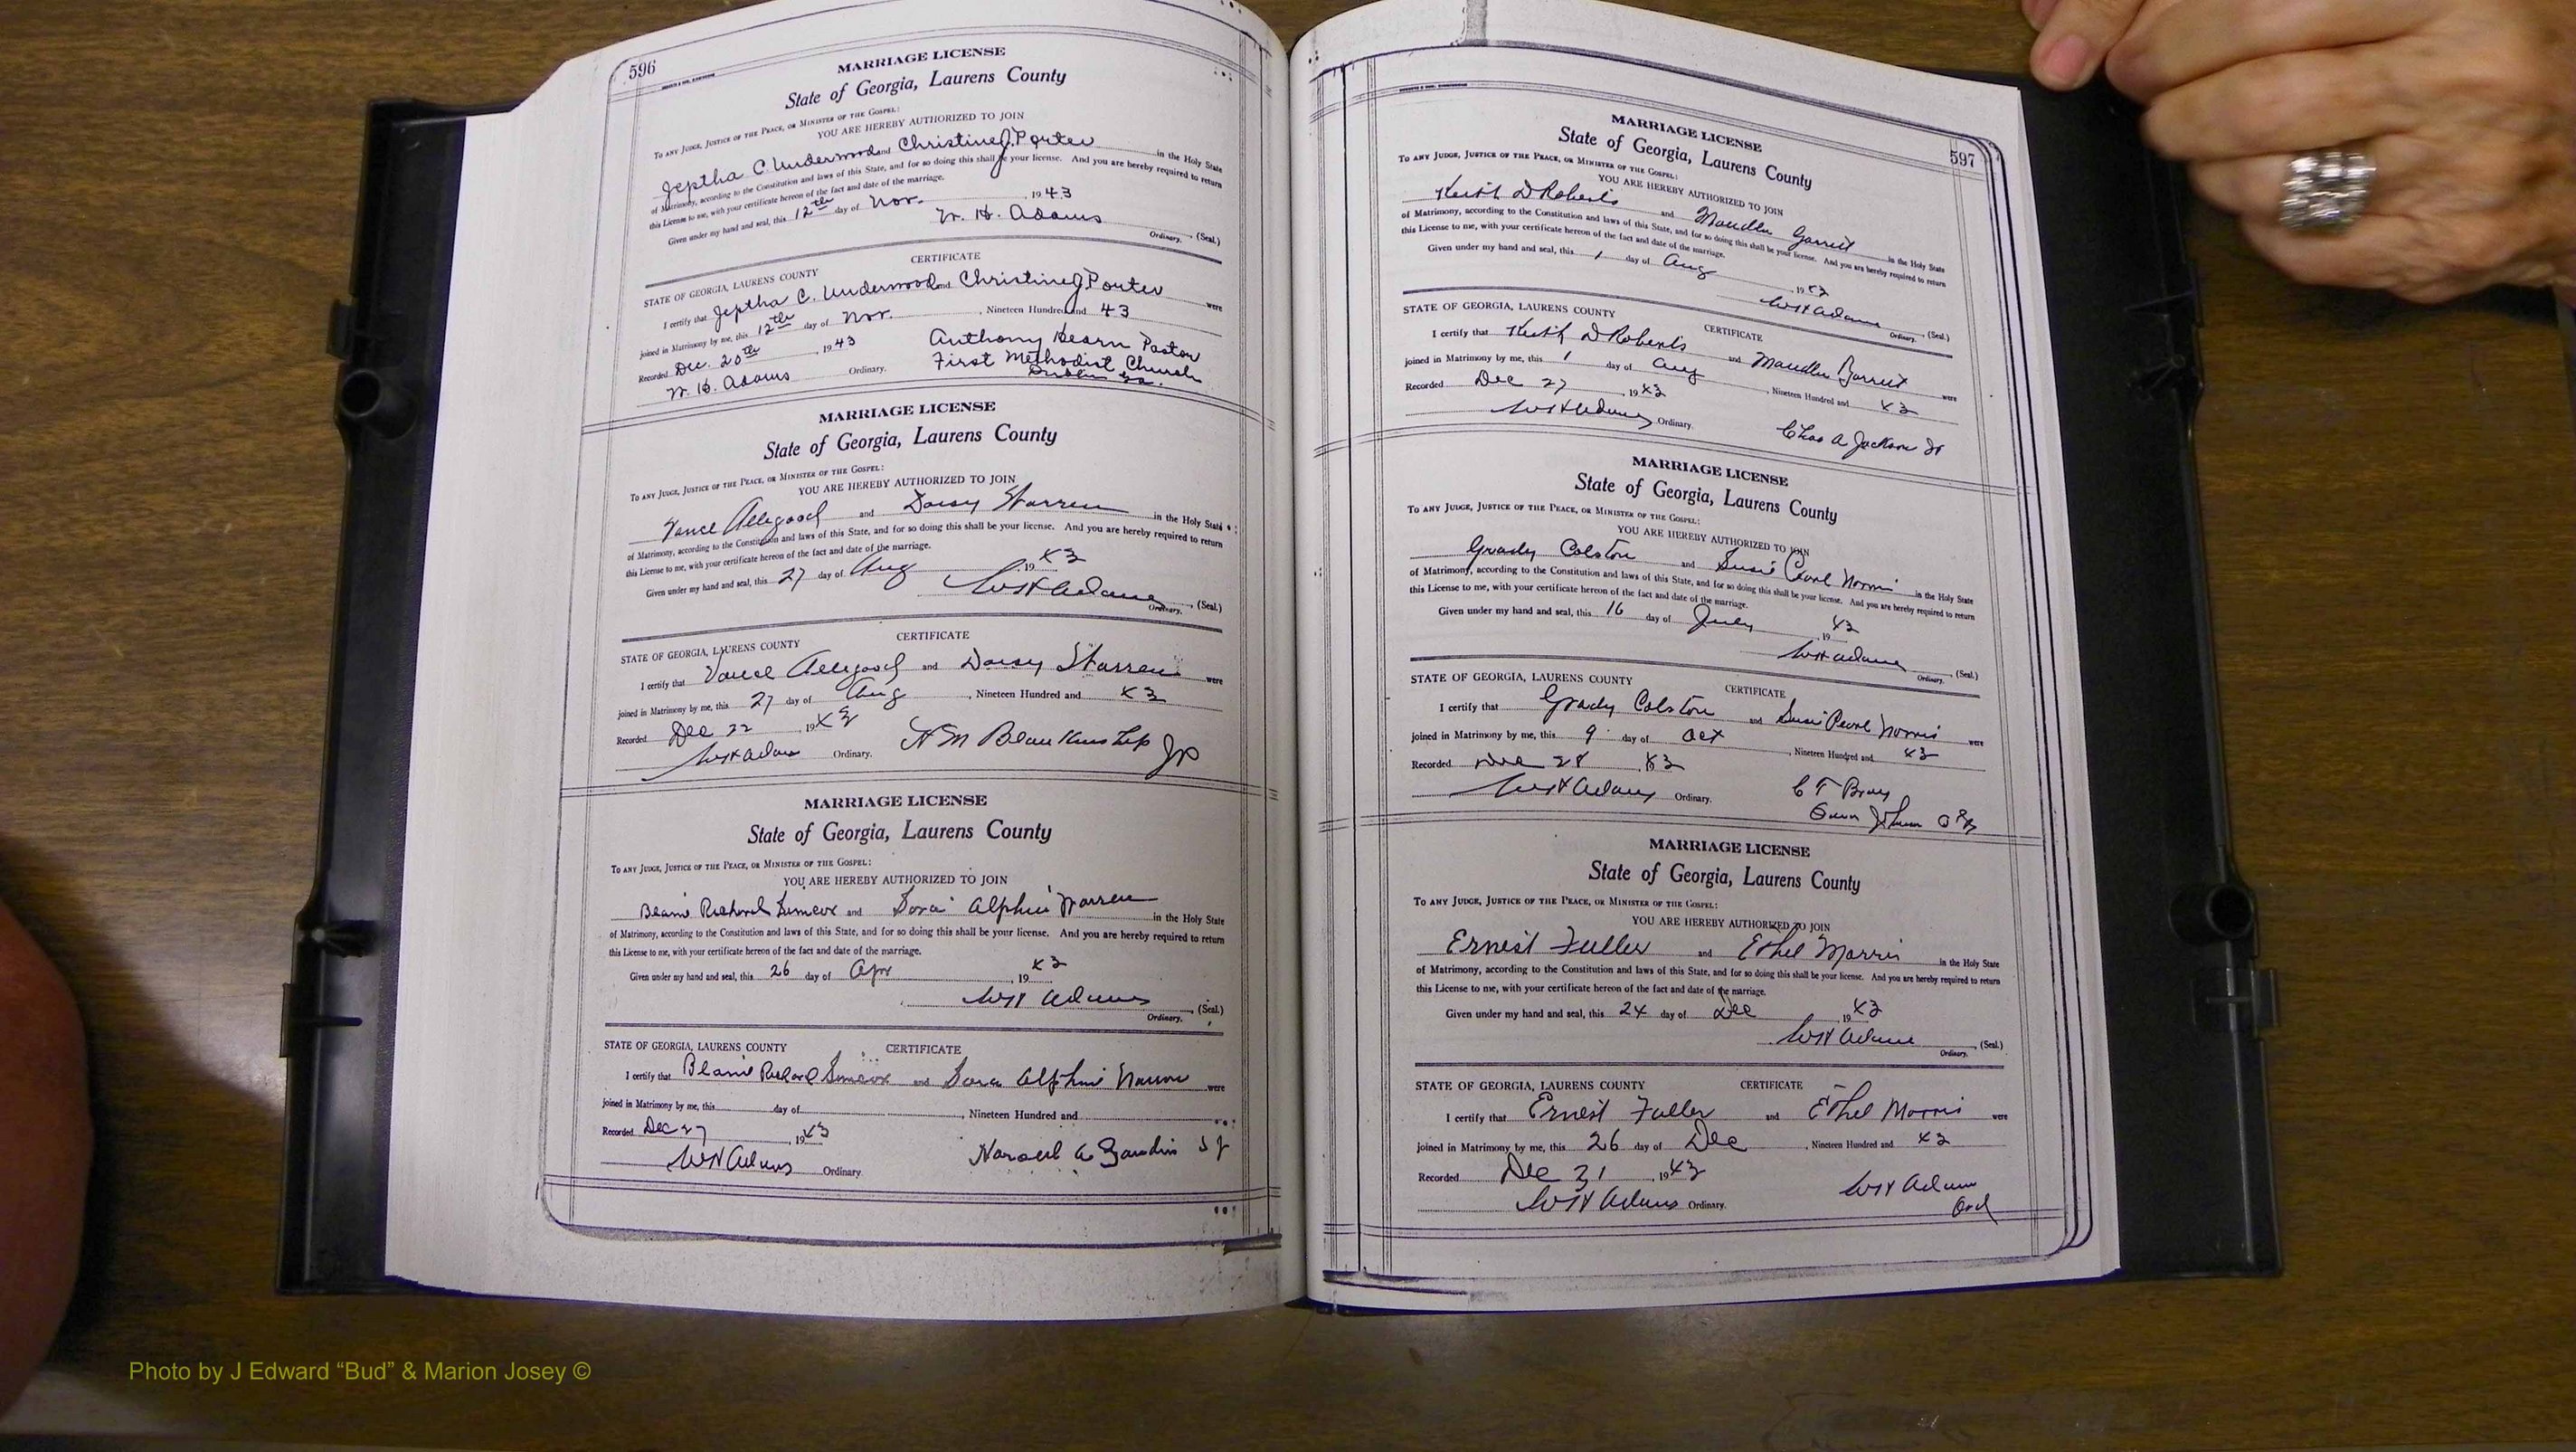 596
MARRIAGE LICENSE
State of Georgia, Laurens County
To any Judge, Justice of the Peace, or Minister of the Gospel:
YOU ARE HEREBY AUTHORIZED TO JOIN
Jeptha C. Underwood and Christine J. Porter in the Holy State
of Matrimony, according to the Constitution and laws of this State, and for so doing this shall be your license. And you are hereby required to return
this License to me, with your certificate hereon of the fact and date of the marriage.
Given under my hand and seal, this 12th day of Nov. , 1943
W. H. Adams , (Seal.)
Ordinary.
CERTIFICATE
STATE OF GEORGIA, LAURENS COUNTY
I certify that Jeptha C. Underwood and Christine J Porter were
joined in Matrimony by me, this 12th day of Nov. , Nineteen Hundred and 43
Recorded Dec. 20th , 1943 Anthony Hearn Pastor
W. H. Adams Ordinary. First Methodist Church
Dublin Ga.
MARRIAGE LICENSE
State of Georgia, Laurens County
To any Judge, Justice of the Peace, or Minister of the Gospel:
YOU ARE HEREBY AUTHORIZED TO JOIN
Vance Allegood and Daisy in the Holy State
of Matrimony, according to the Constitution and laws of this State, and for so doing this shall be your license. And you are hereby required to return
this License to me, with your certificate hereon of the fact and date of the marriage.
Given under my hand and seal, this 27 day of Aug , 1943
W H Adams , (Seal.)
Ordinary.
CERTIFICATE
STATE OF GEORGIA, LAURENS COUNTY
I certify that Vance Allegood and Daisy were
joined in Matrimony by me, this 27 day of Aug , Nineteen Hundred and 43
Recorded Dec 22 , 1943
W H Adams Ordinary. H M Blankenship JP
MARRIAGE LICENSE
State of Georgia, Laurens County
To any Judge, Justice of the Peace, or Minister of the Gospel:
YOU ARE HEREBY AUTHORIZED TO JOIN
Richard and Warren in the Holy State
of Matrimony, according to the Constitution and laws of this State, and for so doing this shall be your license. And you are hereby required to return
this License to me, with your certificate hereon of the fact and date of the marriage.
Given under my hand and seal, this 26 day of Apr , 1943
W H Adams , (Seal.)
Ordinary.
STATE OF GEORGIA, LAURENS COUNTY CERTIFICATE
I certify that Richard and were
joined in Matrimony by me, this day of , Nineteen Hundred and
Recorded Dec 27 , 1943
W H Adams Ordinary.
597
MARRIAGE LICENSE
State of Georgia, Laurens County
To any Judge, Justice of the Peace, or Minister of the Gospel:
YOU ARE HEREBY AUTHORIZED TO JOIN
Keith D Roberts and Garrett in the Holy State
of Matrimony, according to the Constitution and laws of this State, and for so doing this shall be your license. And you are hereby required to return
this License to me, with your certificate hereon of the fact and date of the marriage.
Given under my hand and seal, this 1 day of Aug , 1943
W H Adams , (Seal.)
Ordinary.
STATE OF GEORGIA, LAURENS COUNTY CERTIFICATE
I certify that Keith D Roberts and were
joined in Matrimony by me, this 1 day of Aug , Nineteen Hundred and 43
Recorded Dec 27 1943
W H Adams Ordinary. Chas A Jackson Jr
MARRIAGE LICENSE
State of Georgia, Laurens County
To any Judge, Justice of the Peace, or Minister of the Gospel:
YOU ARE HEREBY AUTHORIZED TO JOIN
Grady Colston and Susie Pearl Norris in the Holy State
of Matrimony, according to the Constitution and laws of this State, and for so doing this shall be your license. And you are hereby required to return
this License to me, with your certificate hereon of the fact and date of the marriage.
Given under my hand and seal, this 16 day of July , 1943
W H Adams , (Seal.)
Ordinary.
STATE OF GEORGIA, LAURENS COUNTY CERTIFICATE
I certify that Grady Colston and Susie Pearl Norris were
joined in Matrimony by me, this 9 day of Oct , Nineteen Hundred and 43
Recorded Dec 28 , 43
W H Adams Ordinary. C T Bray
MARRIAGE LICENSE
State of Georgia, Laurens County
To any Judge, Justice of the Peace, or Minister of the Gospel:
YOU ARE HEREBY AUTHORIZED TO JOIN
Ernest Fuller and Ethel Morris in the Holy State
of Matrimony, according to the Constitution and laws of this State, and for so doing this shall be your license. And you are hereby required to return
this License to me, with your certificate hereon of the fact and date of the marriage.
Given under my hand and seal, this 24 day of Dec , 1943
W H Adams , (Seal.)
Ordinary.
STATE OF GEORGIA, LAURENS COUNTY CERTIFICATE
I certify that Ernest Fuller and Ethel Morris were
joined in Matrimony by me, this 26 day of Dec , Nineteen Hundred and 43
Recorded Dec 31 , 1943 W H Adams
W H Adams Ordinary. Ord
Photo by J Edward “Bud” & Marion Josey ©